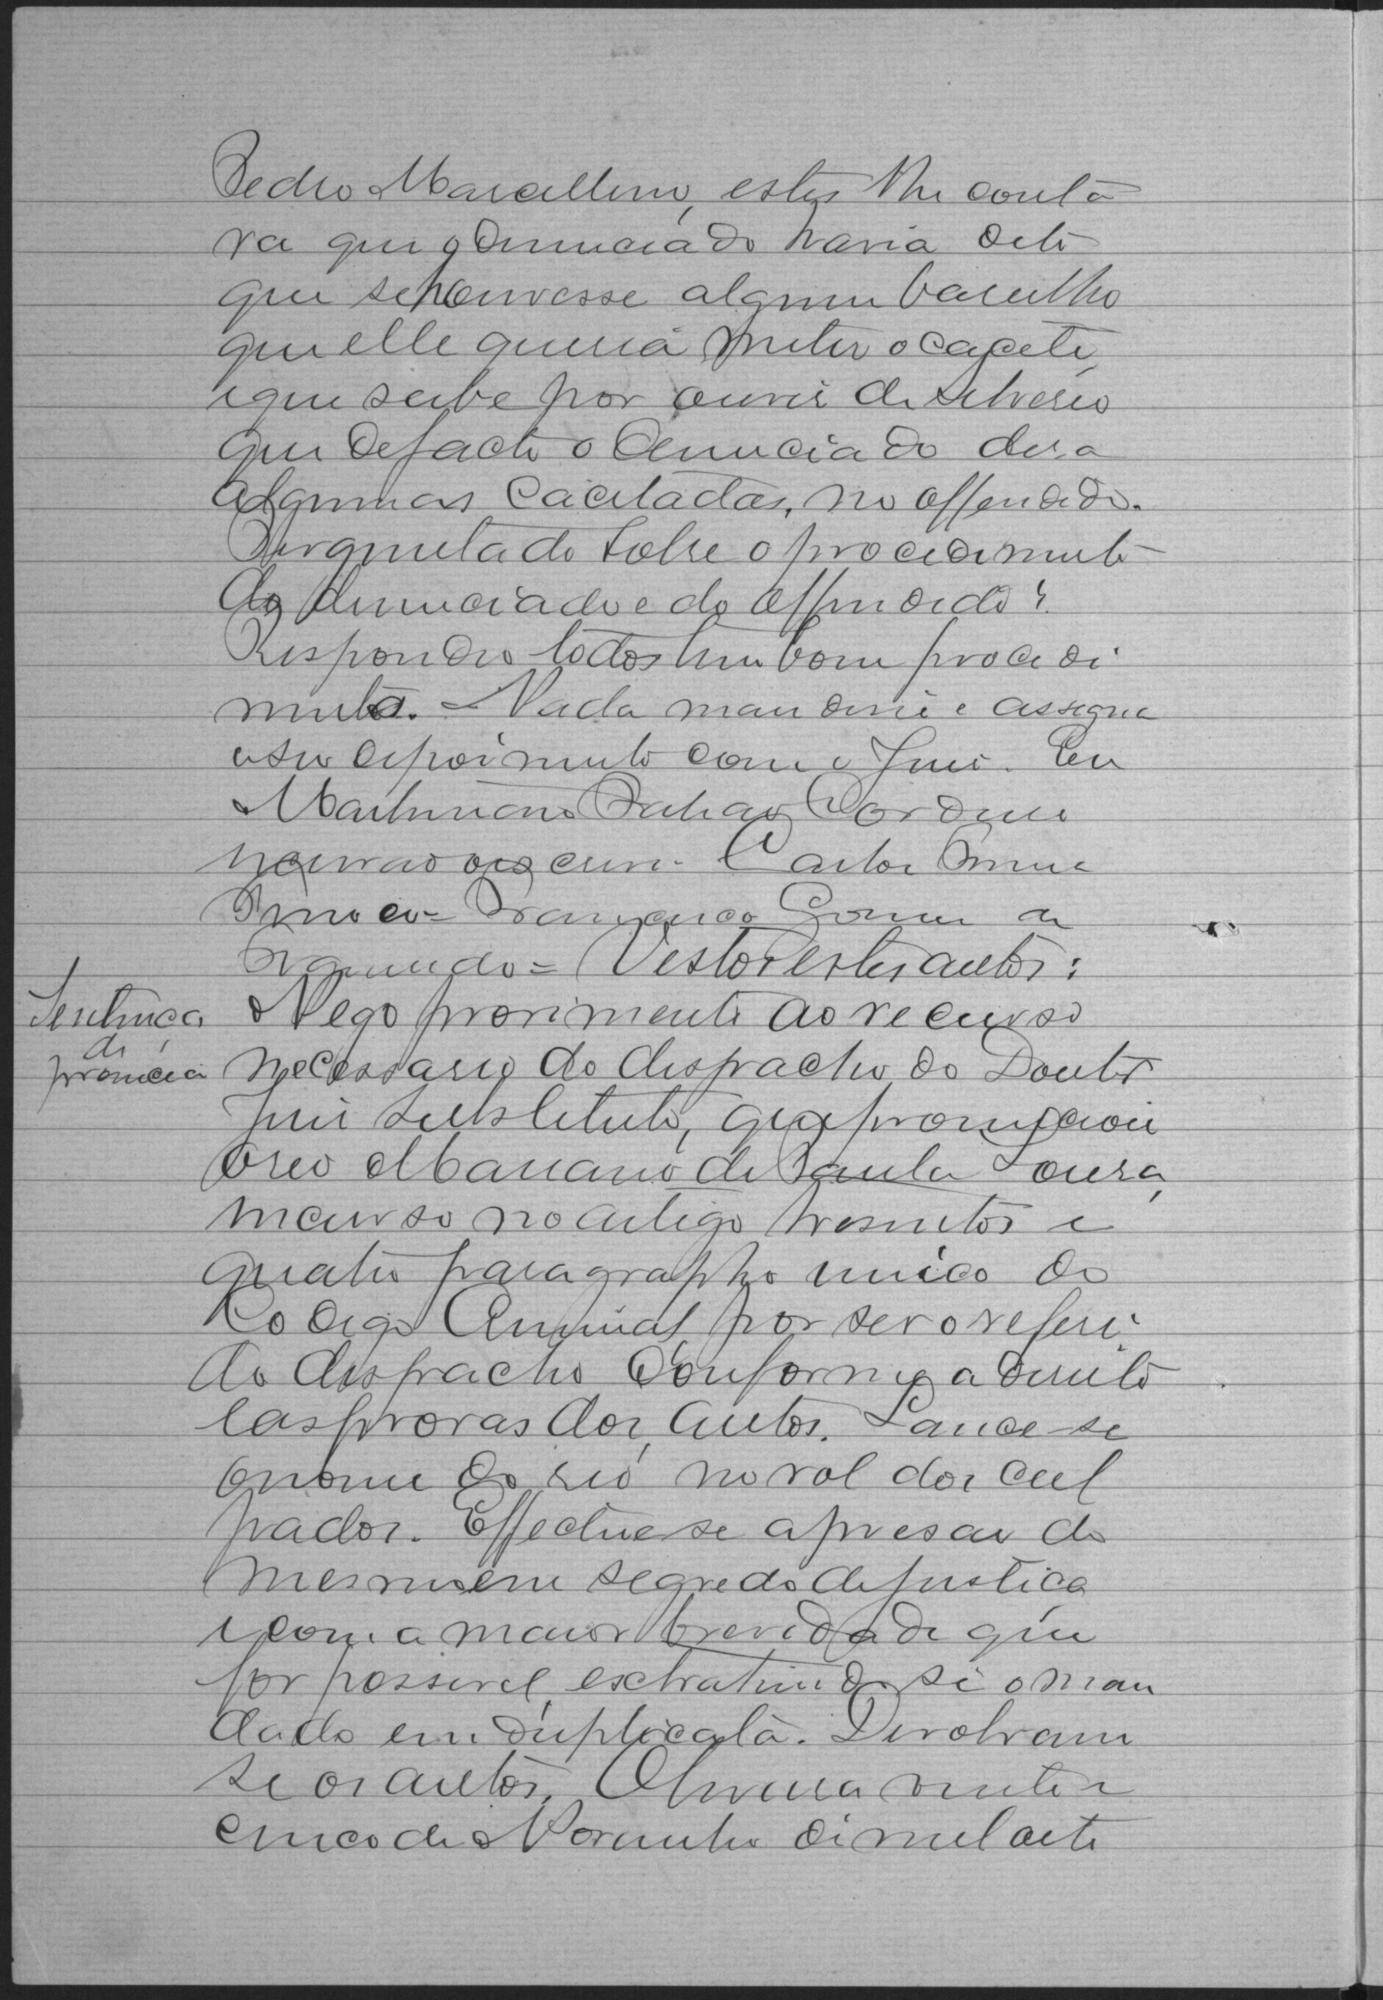 Pedro Marcellino, estes lhe conta
va que o denunciado havia dito
que se houvesse algum barulho
que elle queria meter o cacete,
e que sabe por ouvir de Silverio
que de facto o denunciado dera
algumas cacetadas, no offendido.
Perguntado sobre o procedimento
do denunciado e do offendido?
Respondeo todos tem bom procedi
mento. Nada mau disse e assigna
o seu depoimento com o Juis. Eu
Martiniano Cordeiro
escrevi. Carlos
Francisco Gomes de
Vistos estes autos:
Sentença
de
pronuncia
Nego provimento ao recurso
necessario do despacho do Doutor
Juis substituto, que pronunciou
o reo Marianno de Paula Sousa,
incurso no artigo tresentos e
quatro paragrapho unico do
Codigo Criminal, por ser o referi
do despacho conforme a direito
e as provas dos autos. Lance-se
o nome do reo no rol dos cul
pados. Effectue se a prisão do
mesmo em segredo de justiça
e com a maior brevidade que
for possivel, extrahindo se o man
dado em duplicata. Devolvam
se os autos. Oliveira vinte e
cinco de Novembro de mil oito